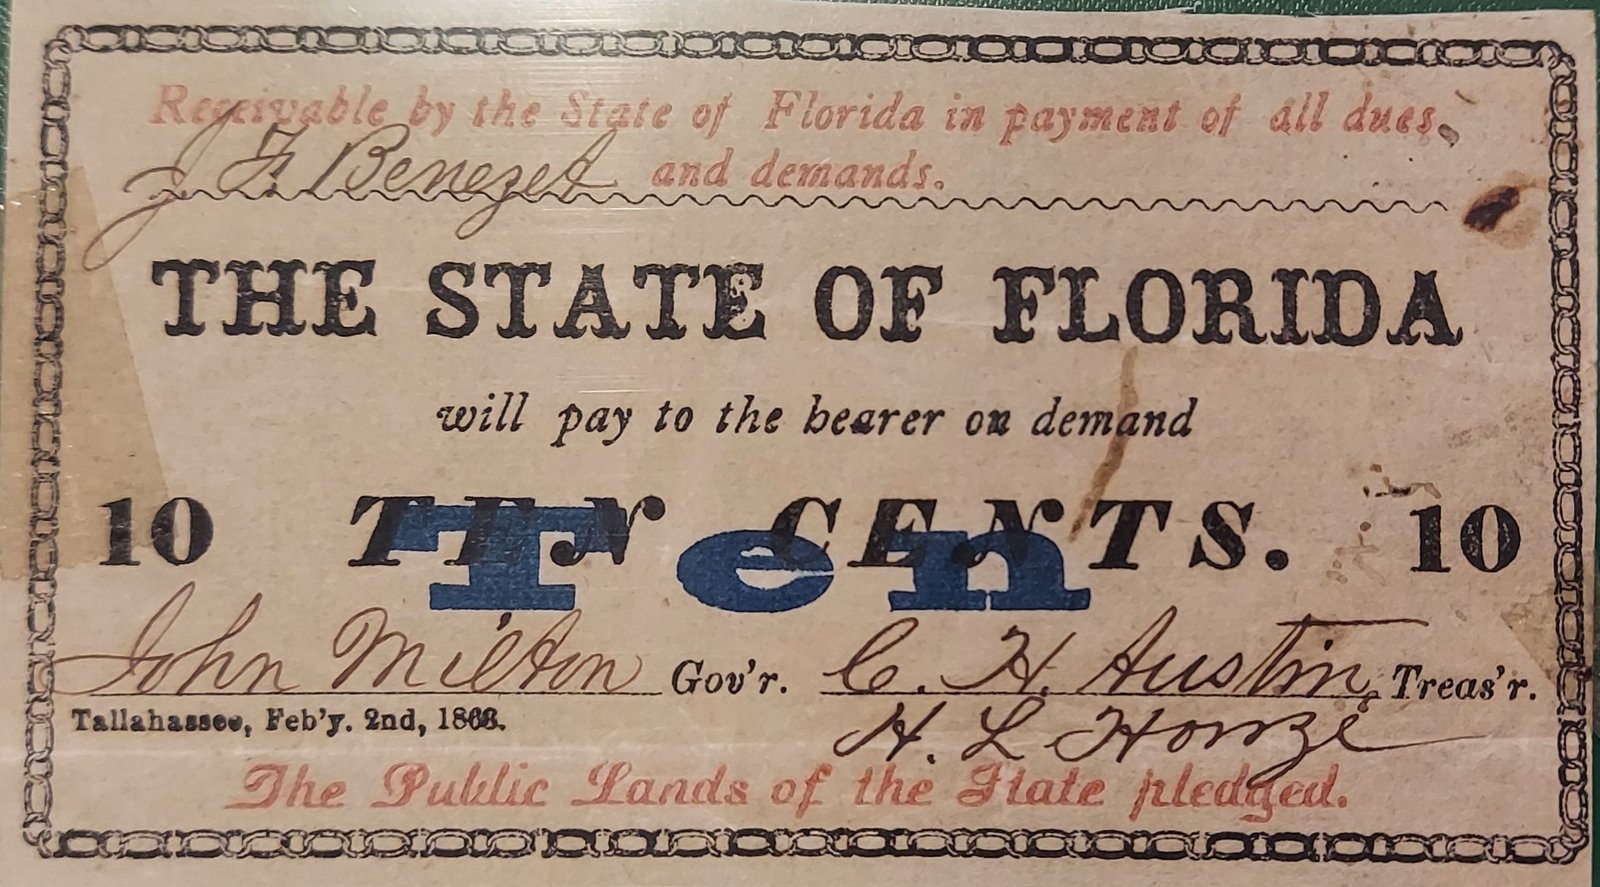 Receivable by the State of Florida in payment of all dues,
and demands.
J F Benezet
THE STATE OF FLORIDA
will pay to the bearer on demand
10 TEN CENTS. 10
Ten
John Milton Gov'r. C. H. Austin, Treas'r.
Tallahassee, Feb'y. 2nd, 1863.
H. L Howze
The Public Lands of the State pledged.